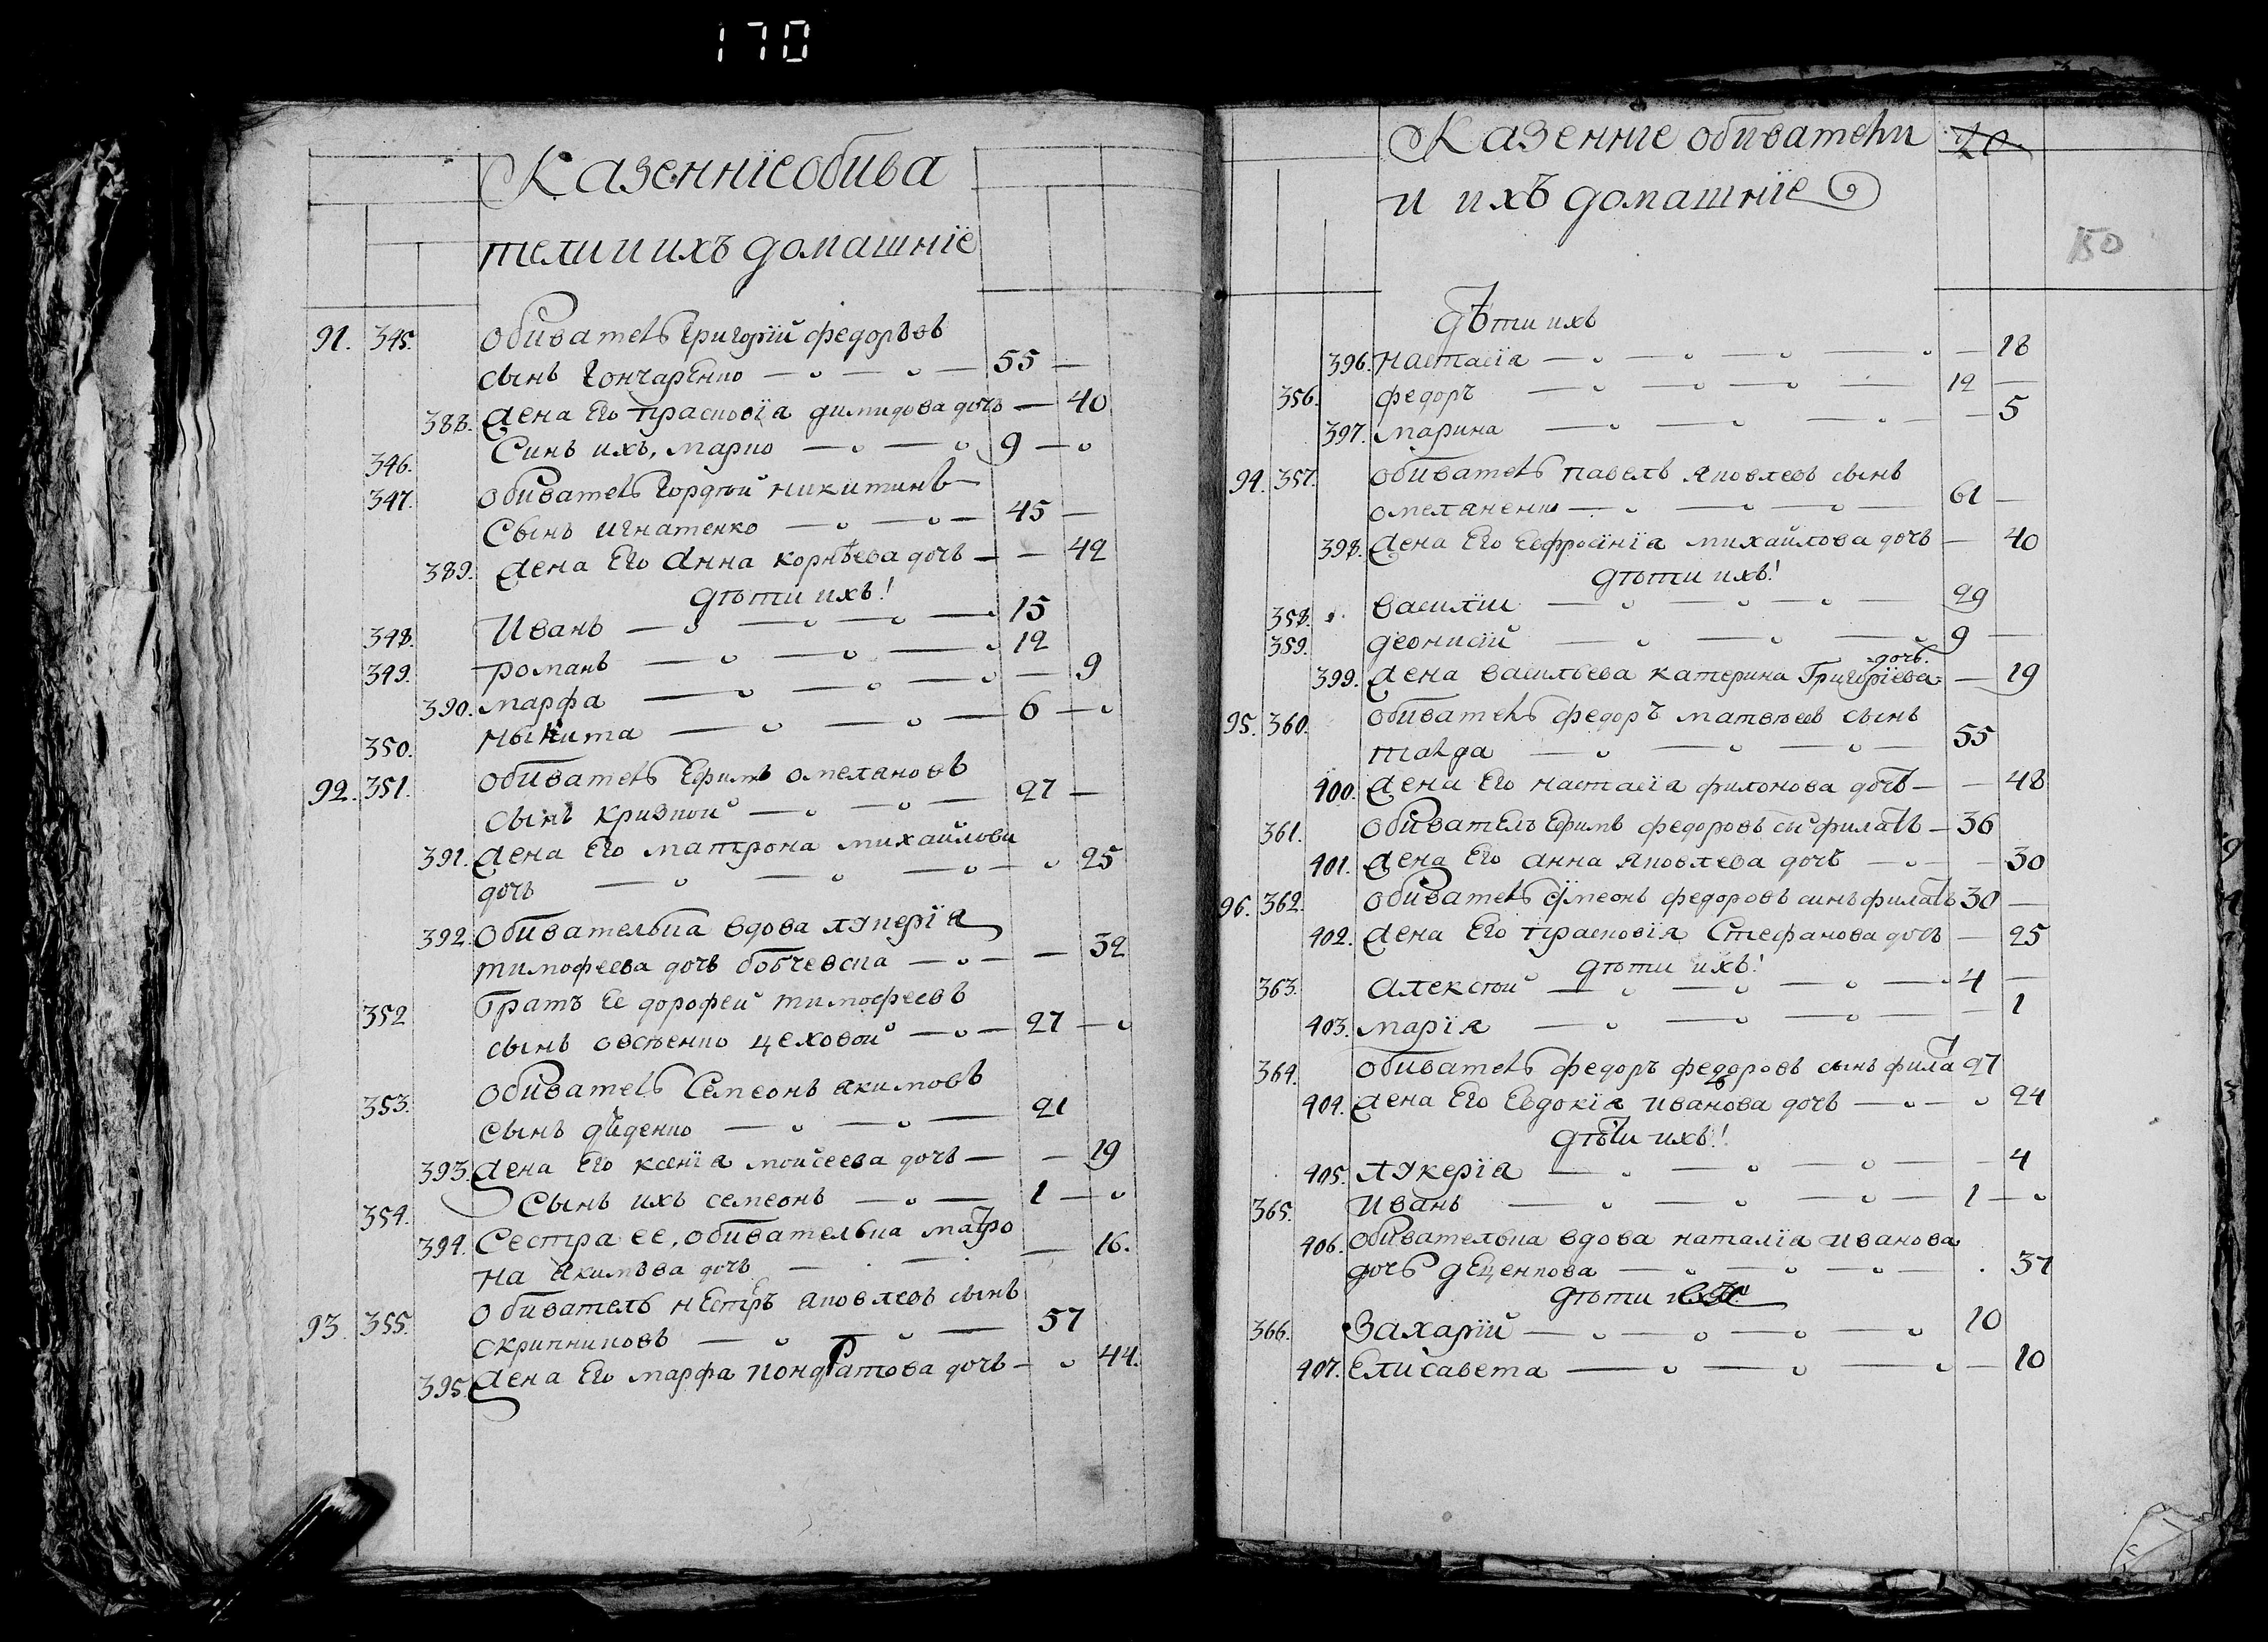 170
Казенніе обива
тели и ихъ домашніе
91. 345. обиватель Григорій федоровъ
сынъ Гончаренко 55 —
388. Жена Его Прасковіа димидова дочь — 40
346. Синъ ихъ, марко 9 —
347. обиватель Гордѣй никитинъ
Сынъ игнатенко 45 —
389. Жена Его Анна корнѣева дочь — 42
дѣти ихъ!
348. Иванъ 15
349. романъ 12
390. марфа — 9
350. Никита 6 —
92. 351. обиватель Ефимъ омеляновъ
сынъ кривкой 27 —
391. Жена Его матрона михайлова
дочь 25
392. обивателька вдова лукеріа
тимофеева дочь бобчевска — 32
352 братъ Ее дорофей тимофеевъ
сынъ овсѣенко цеховой 27 —
353. обиватель Семеонъ акимовъ
сынъ дѣденко 21
393. Жена Его ксеніа моисеева дочь — 19
354. Сынъ ихъ семеонъ 1 —
394. Сестра ее, обивателька матро
на акимова дочь — 16.
93. 355. обиватель нестеръ яковлевъ сынъ
скрипниковъ 57
395. Жена Его марфа кондратова дочь — 44.
Казенніе обиватели 70
и ихъ домашніе
150
дѣти ихъ
396. настасіа — 18
356. федоръ 12 —
397. марина — 5
94. 357. обиватель павелъ яковлевъ сынъ
омеляненко 61 —
398. Жена Его Евфросініа михайлова дочь — 40
дѣти ихъ!
358. василіи 29
359. деонисій 9
дочь.
399. Жена васильева катерина Григоріева — 19
95. 360. обиватель федоръ матвѣевъ сынъ
талда 55
400. Жена Его настасіа филонова дочь — 48
361. обиватель Ефимъ федоровъ сы филатъ 36
401. Жена Его анна яковлева дочь — 30
96. 362. обиватель сѵмеонъ федоровъ синъ филатъ 30 —
402. Жена Его прасковія Стефанова дочь — 25
дѣти ихъ!
363. алексѣй 4 —
403. маріа — 1
364. обиватель федоръ федоровъ сынъ фила 27
404. Жена Его Евдокіа иванова дочь 24
дѣти ихъ!
405. лукеріа — 4
365. иванъ 1 —
406. обивателька вдова наталіа иванова
дочь деценкова 37
дѣти
366. Захарій 10
407. Елисавета — 10